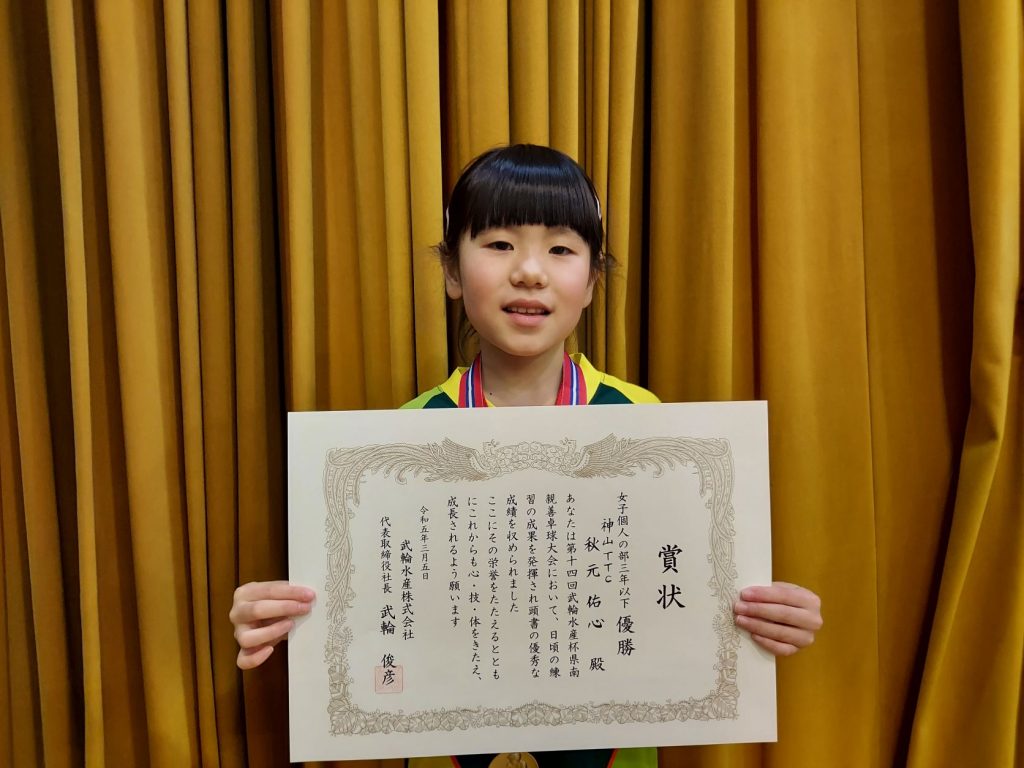 賞状
女子個人の部三年以下 優勝
神山TTC
秋元佑心 殿
あなたは第十四回武輪水産杯県南
親善卓球大会において、日頃の練
習の成果を発揮され頭書の優秀な
成績を収められました
ここにその栄誉をたたえるととも
にこれからも心・技・体をきたえ、
成長されるよう願います
令和五年三月五日
武輪水産株式会社
代表取締役社長 武輪 俊彦